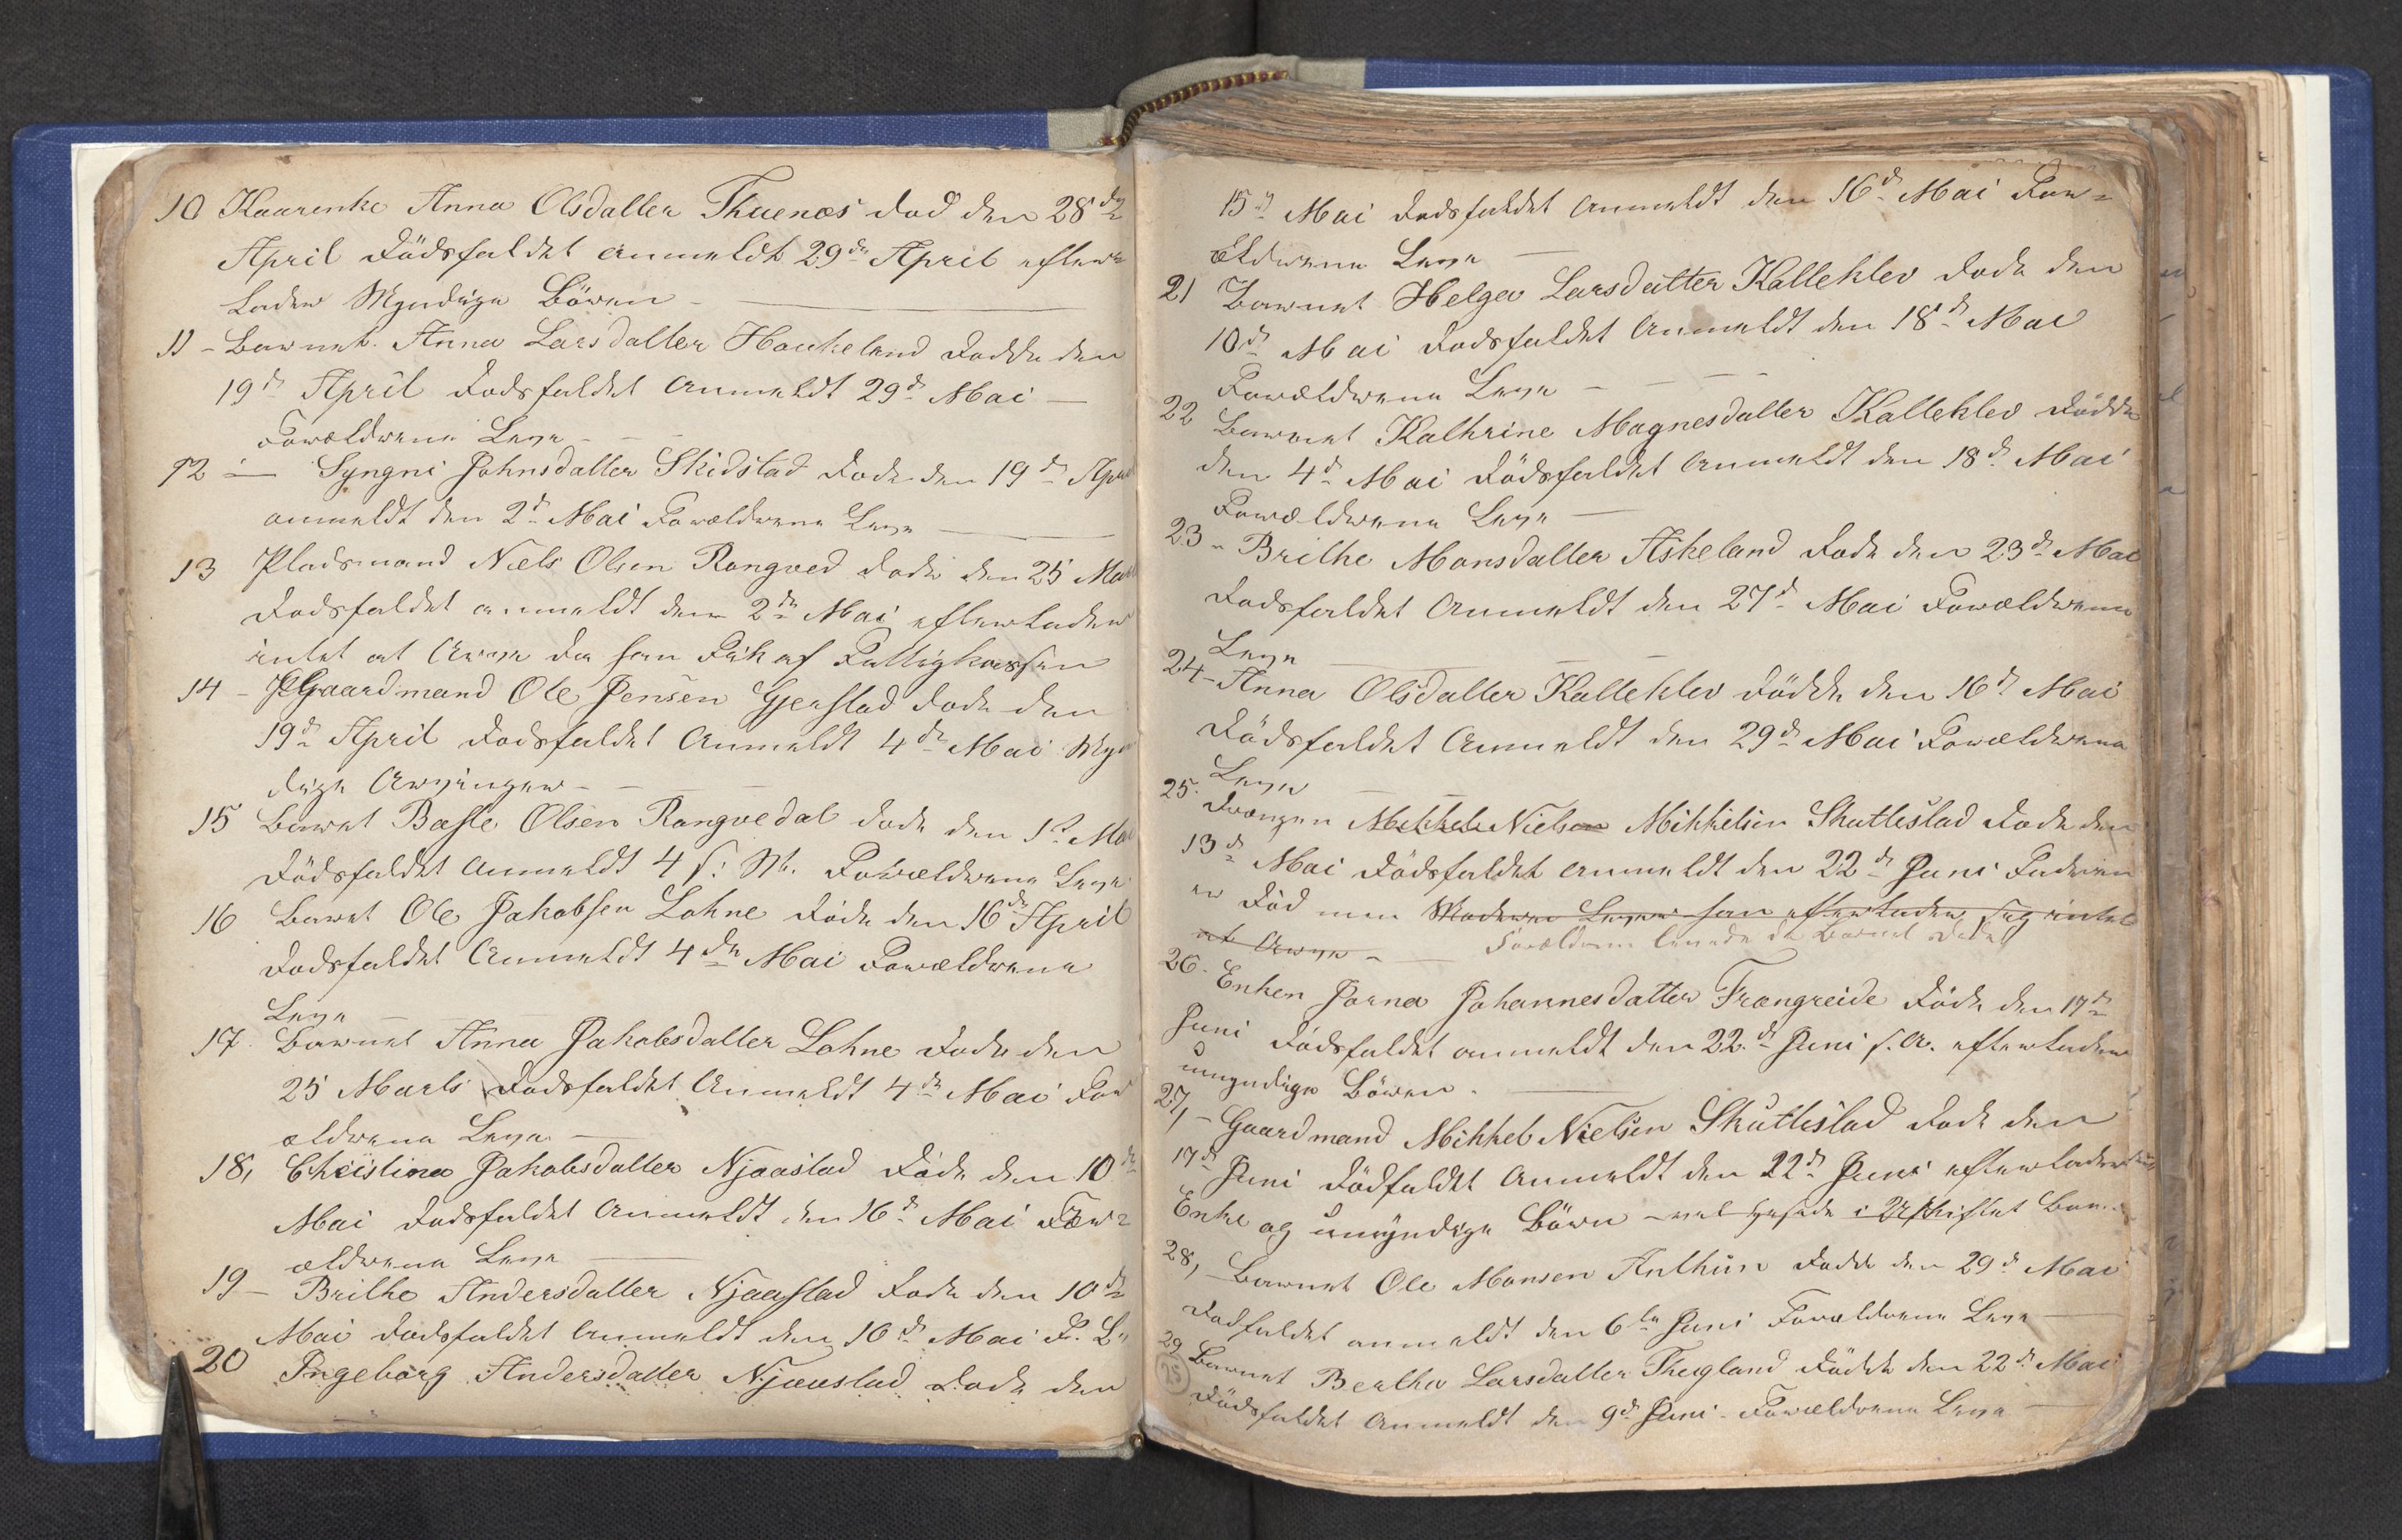 10 Kaarenke Anna Olsdatter Thuenæs Død den 28de
April Dödsfaldet anmeldt 29de April efter-
lader Myndige Börn
11 - Barnet Anna Larsdatter Haukeland Dödde den
19d April Dodsfaldet Anmeldt 29d Mai
Forældrene Leve
12 - Syngni Johnsdatter Skidstad Døde den 19d Apr
anmeldt den 2d Mai Forældrene Leve
13 Pladsmand Niels Olsen Rongved døde den 25 Ma
Dodsfaldet anmeldt den 2de Mai efterlader
intet at Arve da han Fik af Fattigkassen
14 - Gaardmand Ole Jensen Gjerstad dode den
19de April Dodsfaldet Anmeldt 4de Mai Myn
dige Arvinger
15 Barnet Baste Olsen Rongvedal dode den 1d Ma
Dödsfaldet Anmeldt 4 s: M. Forældrene Leve
16 Barnet Ole Jakobsen Lohne döde den 16de April
Dodsfaldet Anmeldt 4de Mai Forældrene
Leve
17 Barnet Anna Jakobsdatter Lohne Døde den
25 Marts Dodsfaldet Anmeldt 4de Mai For
ældrene Leve
18, Christina Jakobsdatter Njaastad Döde den 10de
Mai Dodsfaldet Anmeldt den 16d Mai For=
ældrene Leve
19 - Brithe Andersdatter Njaastad Dode den 10de
Mai dodsfaldet Anmeldt den 16d Mai F. L.
20 Ingeborg Andersdatter Njaastad Dode den
15d Mai Dodsfaldet Anmeldt den 16d Mai For=
ældrene Leve
21 Barnet Helga Larsdatter Kalleklev dode den
10d Mai Dodsfaldet Anmeldt den 18d Mai
Forældrene Leve
22 Barnet Kathrine Magnesdatter Kalleklev Dödde
den 4d Mai Dödsfaldet Anmeldt den 18d Mai
Forældrene Leve
23 - Brithe Monsdatter Askeland Dode den 23d Mai
Dodsfaldet Anmeldt den 27d Mai Forældrene
Leve
24 - Anna Olsdatter Kalleklev Dödde den 16d Mai
Dödsfaldet Anmeldt den 29d Mai Forældrene
Leve
25. Drængen Mikkel Nielsen Mikkelsen Skutlestad Døde den
13d Mai Dödsfaldet anmeldt den 22d Juni Faderen
er Död men Moderen Lever han efterlader sig intet
at Arve - Forældrene levede da Barnet döde
26. Enken Jorna Johannesdatter Frængreide Döde den 17de
Juni Dödsfaldet anmeldt den 22d Juni s. A. efterlader
umyndige Börn.
27, - Gaardmand Mikkel Nielsen Skutlestad Dode den
17d Juni Dödfaldet Anmeldt den 22d Juni efterlader
Enke og umyndige Börn - i Uskiftet
28, - Barnet Ole Monsen Anthun Dødde den 29d Mai
Dodfaldet anmeldt den 6te Juni Forældrene Leve
29 Barnet Bertha Larsdatter Thugland Dödde den 22d Mai
Dödsfaldet Anmeldt den 9d Juni Forældrene Leve